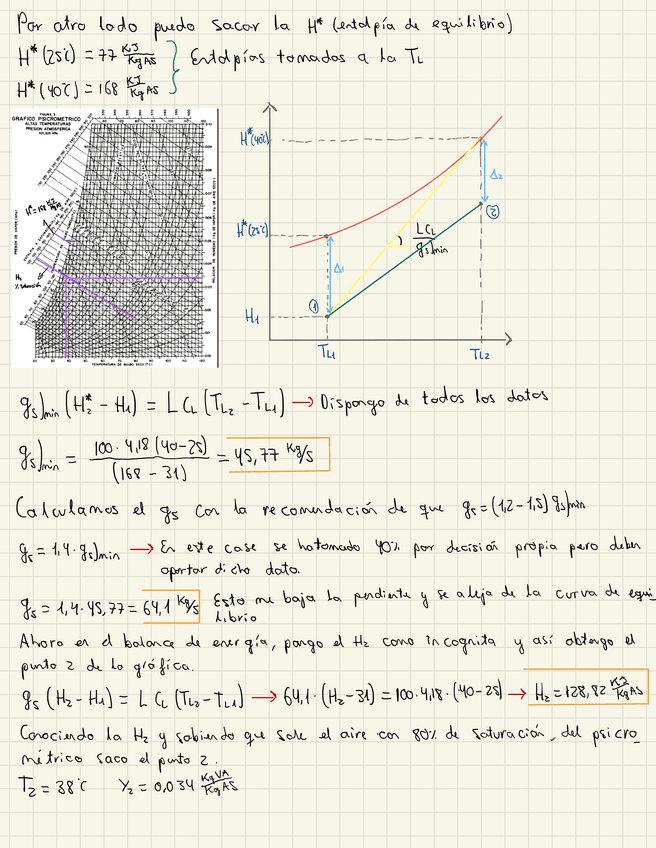 Por otro lado puedo sacar la H* (entalpía de equilibrio)
H*(25℃) = 77 KJ/KgAS } Entalpías tomadas a la TL
H*(40℃) = 168 KJ/KgAS
GRAFICO PSICROMETRICO
ALTAS TEMPERATURAS
PRESION ATMOSFERICA
TEMPERATURA DE BULBO SECO (°C)
H*(40℃)
H*(25℃)
H1
Δ1
Δ2
①
②
L CL / gs)min
TL1
TL2
gs)min (H2* - H1) = L CL (TL2 - TL1) → Dispongo de todos los datos
gs)min = 100·4,18 (40-25) / (168 - 31) = 45,77 Kg/s
Calculamos el gs con la recomendación de que gs = (1,2 - 1,5) gs)min
gs = 1,4 · gs)min → En este case se ha tomado 40% por decisión propia pero deben
aportar dicho dato.
gs = 1,4 · 45,77 = 64,1 Kg/s Esto me baja la pendiente y se aleja de la curva de equi_
librio
Ahora en el balance de energía, pongo el H2 como incognita y así obtengo el
punto 2 de la gráfica.
gs (H2 - H1) = L CL (TL2 - TL1) → 64,1 · (H2 - 31) = 100·4,18 · (40 - 25) → H2 = 128,82 KJ/KgAS
Conociendo la H2 y sabiendo que sale el aire con 80% de saturación, del psicro_
métrico saco el punto 2.
T2 = 38℃ Y2 = 0,034 KgVA/KgAS